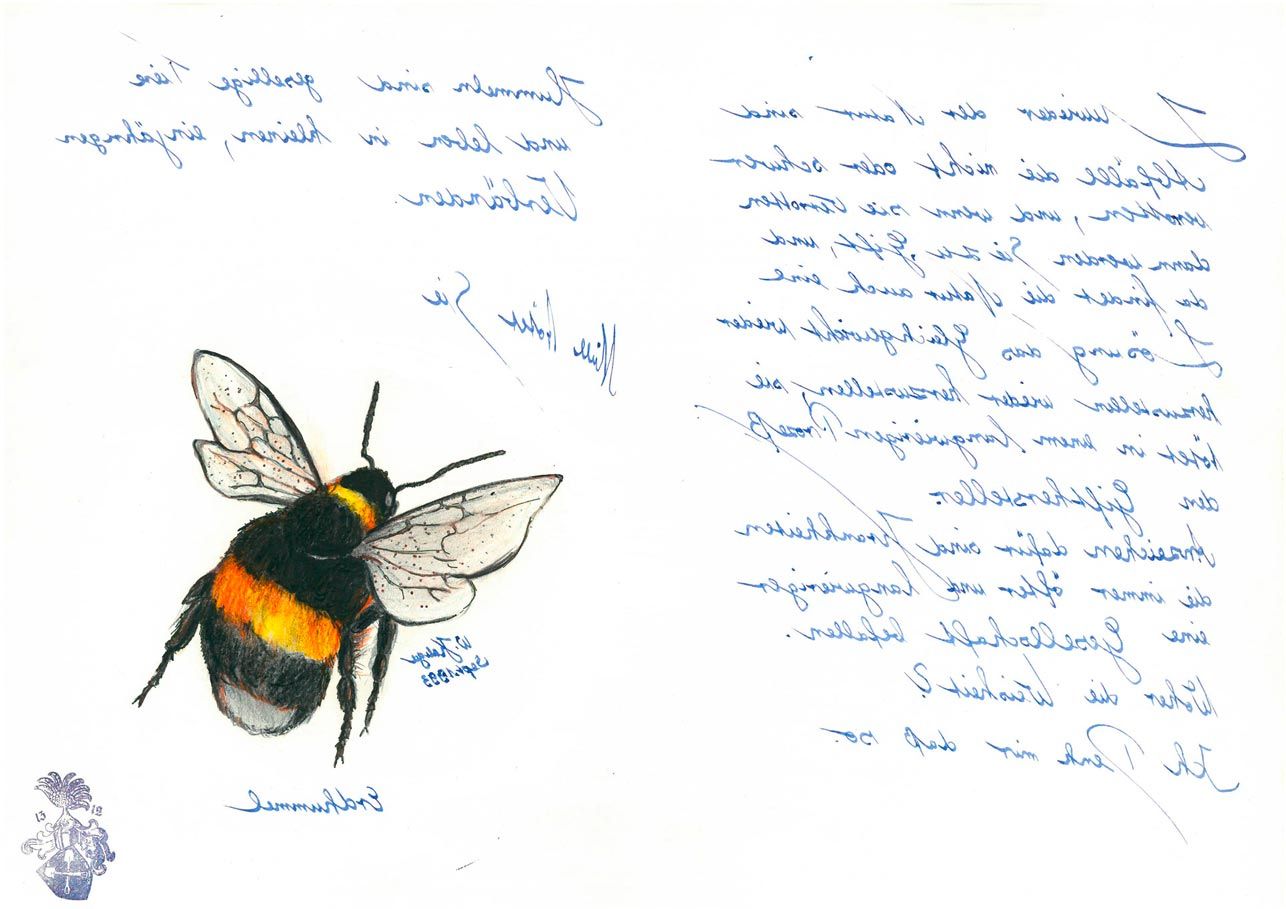 Zuwieder der Natur sind
Abfälle die nicht oder schwer
verotten, und wenn sie Verotten
dann werden Sie zu Gift, und
da findet die Natur auch eine
Lösung das Gleichgewicht wieder
herzustellen wieder herzustellen, sie
tötet in einem langwierigen Prozeß
den Gifthersteller.
Anzeichen dafür sind Krankheiten
die immer öfter und langwieriger
eine Gesellschaft befallen.
Woher die Weisheit?
Ich Denk mir daß so.
Hummeln sind gesellige Tiere
und leben in kleinen, einjährigen
Verbänden.
tötet Sie
W.
Sept. 1993
Erdhummel